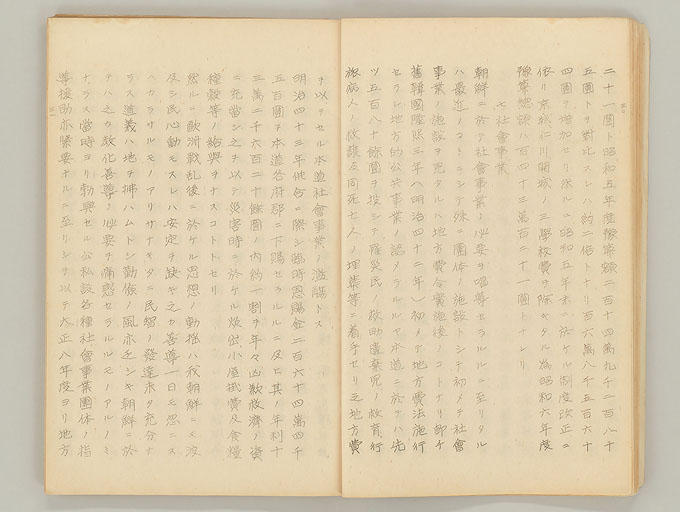 二十一圓ト昭和五年度豫算額二百十四萬九千二百八十
五圓トヲ對比スレハ約二倍トナリ百六萬八千五百六十
四圓ヲ増加セリ然ルニ昭和五年末ニ於ケル制度改正ニ
依リ京城仁川開城ノ三學校費ヲ除キタル為昭和六年度
豫算總額ハ百四十三萬百二十一圓トナレリ
七社會事業
朝鮮ニ於テ社會事業ノ必要ヲ唱導セラルルニ至リタル
ハ最近ノコトニシテ殊ニ團体ノ施設トシテ初メテ社會
事業ノ施設ヲ見タルハ地方費令實施後ノコトナリ即チ
舊韓國隆熙三年(明治四十二年)初メテ地方費法施行
セラレ地方的公共事業ノ認メラルルヤ本道ニ於テハ先
ツ五百八十餘圓ヲ投シテ罹災民ノ救助遺棄児ノ救育行
旅病人ノ救護及同死亡人ノ埋葬等ニ着手セリ之地方費
ヲ以テセル本道社會事業ノ濫觴トス
明治四十三年併合ニ際シ臨時恩賜金二百六十四萬四千
五百圓ヲ本道各府郡ニ下賜セラルルニ及ヒ其ノ年利十
三萬二千六百二十餘圓ノ内約一割ヲ年々凶歉救濟ノ資
ニ充當シ之ヲ以テ災害時ニ於ケル焚出小屋掛費及食糧
種穀等ノ給與ヲナスコトトセリ
然ルニ歐洲戰乱後ニ於ケル思想ノ動揺ハ我朝鮮ニモ波
及シ民心動モスレハ安定ヲ缺キ之カ善導一日モ忽ニス
ヘカラサルモノアリサナキタニ民智ノ發達未タ充分ナ
ラス道義ハ地ヲ拂ハムトシ勤倹ノ風亦乏シキ朝鮮ニ於
テハ之カ教化善導ノ必要ヲ痛感セラルルモノアルノミ
ナラス當時ヨリ勃興セル公私設各種社會事業團体ノ指
導援助亦緊要ナルニ至リシヲ以テ大正八年度ヨリ地方